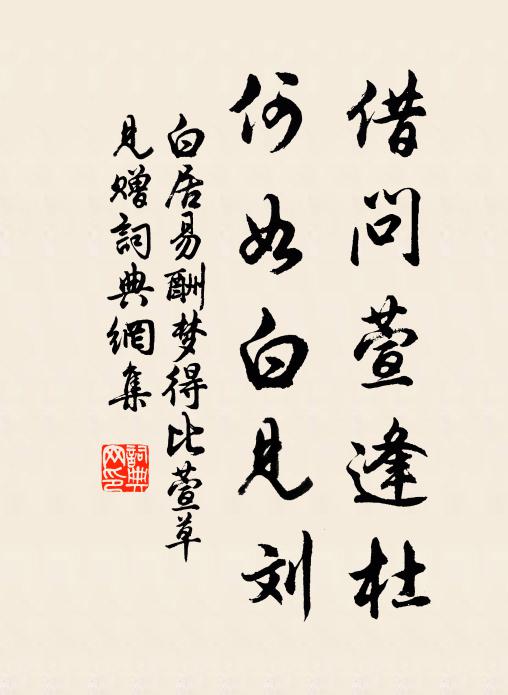 借问萱逢杜
何如白见刘
白居易酬梦得比萱草
见赠词典網集
詞典
网印